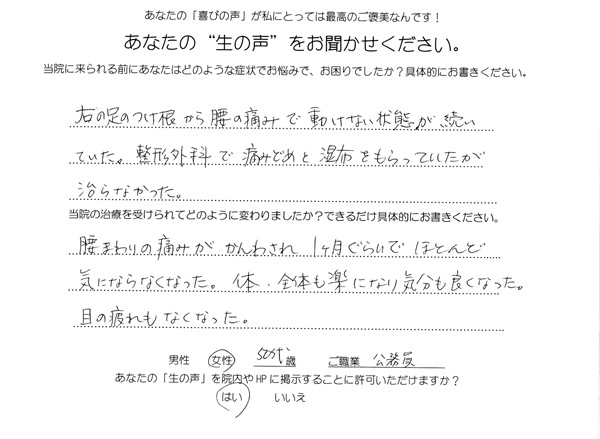 あなたの「喜びの声」が私にとっては最高のご褒美なんです！
あなたの“生の声”をお聞かせください。
当院に来られる前にあなたはどのような症状でお悩みで、お困りでしたか？具体的にお書きください。
右の足のつけ根から腰の痛みで動けない状態が続い
ていた。整形外科で痛みどめと湿布をもらっていたが
治らなかった。
当院の治療を受けられてどのように変わりましたか？できるだけ具体的にお書きください。
腰まわりの痛みがかんわされ1ヶ月ぐらいでほとんど
気にならなくなった。体、全体も楽になり気分も良くなった。
目の疲れもなくなった。
男性 女性 50代歳 ご職業 公務員
あなたの「生の声」を院内やHPに掲示することに許可いただけますか？
はい いいえ